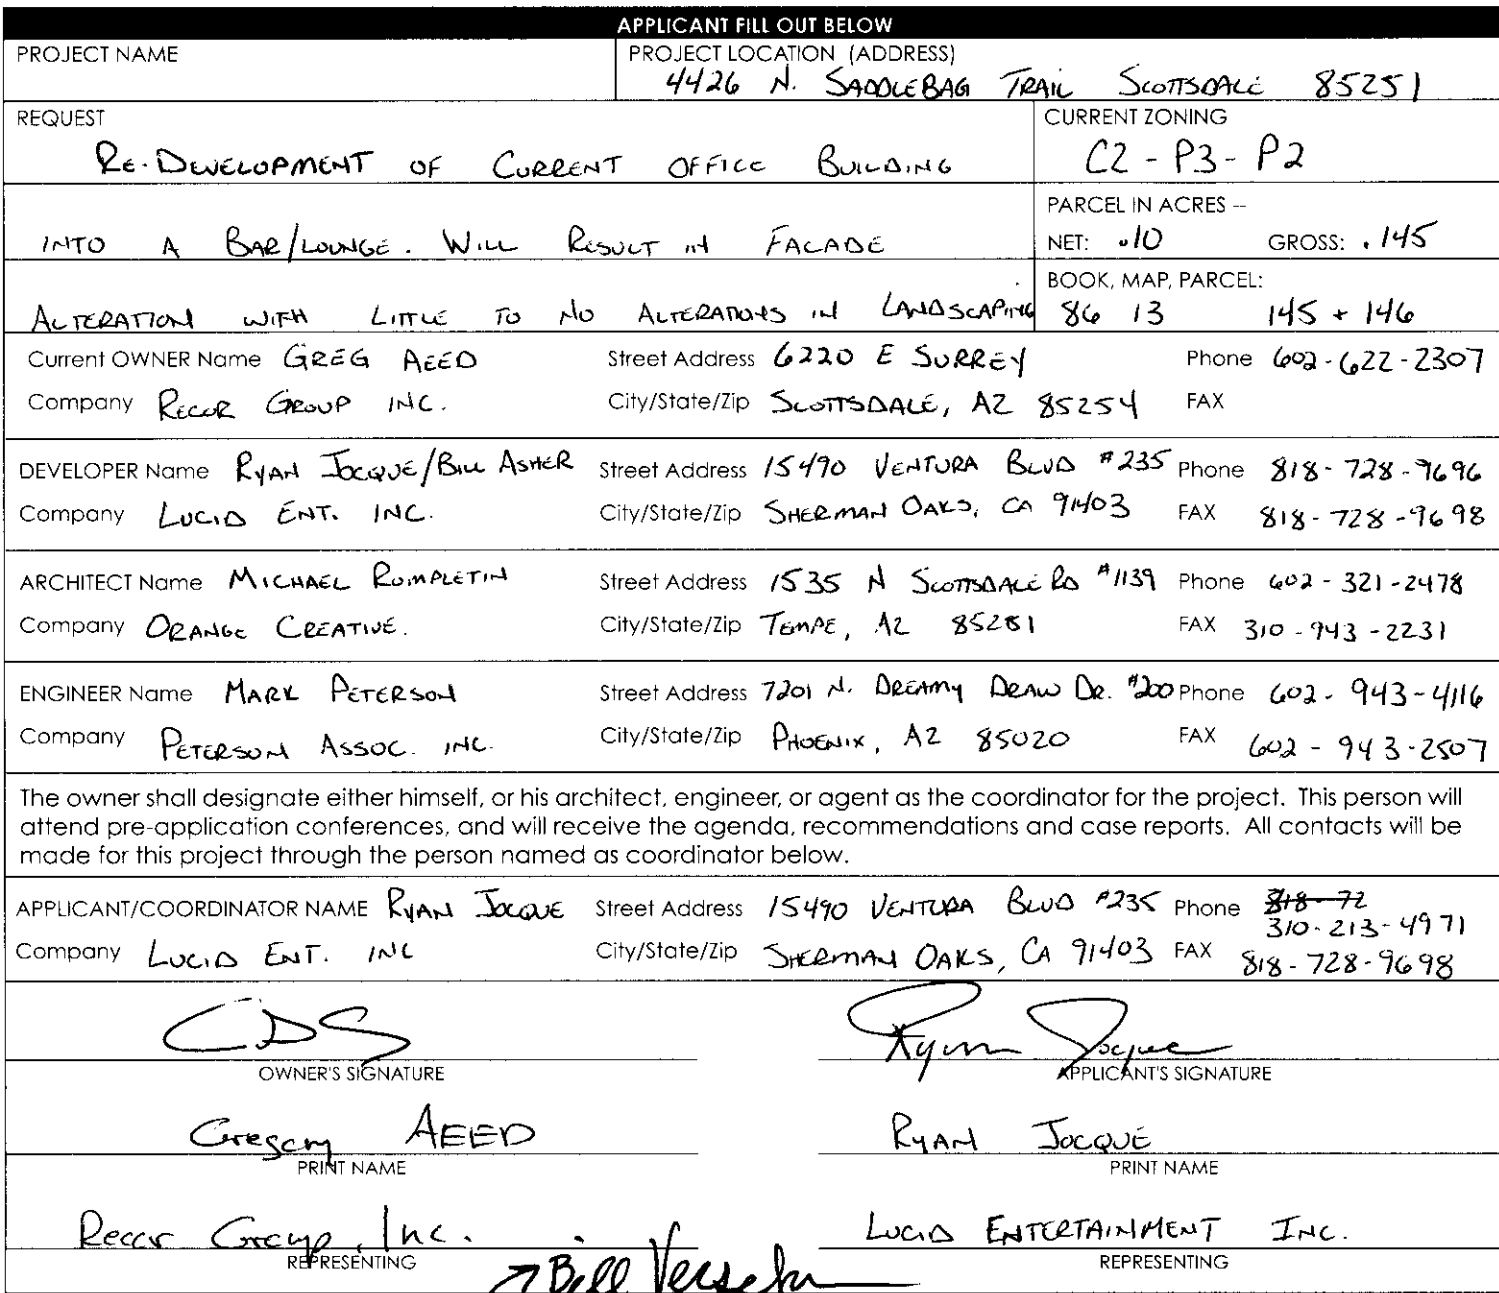 APPLICANT FILL OUT BELOW
PROJECT NAME
PROJECT LOCATION (ADDRESS)
4426 N. SADDLEBAG TRAIL SCOTTSDALE 85251
REQUEST
CURRENT ZONING
RE-DEVELOPMENT OF CURRENT OFFICE BUILDING
C2 - P3 - P2
PARCEL IN ACRES --
INTO A BAR/LOUNGE. WILL RESULT IN FACADE
NET: .10 GROSS: .145
BOOK, MAP, PARCEL:
ALTERATION WITH LITTLE TO NO ALTERATIONS IN LANDSCAPING
86 13 145 + 146
Current OWNER Name GREG AEED Street Address 6220 E SURREY Phone 602-622-2307
Company RECOR GROUP INC. City/State/Zip SCOTTSDALE, AZ 85254 FAX
DEVELOPER Name RYAN JOCQUE/BILL ASHER Street Address 15490 VENTURA BLVD #235 Phone 818-728-9696
Company LUCID ENT. INC. City/State/Zip SHERMAN OAKS, CA 91403 FAX 818-728-9698
ARCHITECT Name MICHAEL RUMPLETIN Street Address 1535 N SCOTTSDALE RD #1139 Phone 602-321-2478
Company ORANGE CREATIVE. City/State/Zip TEMPE, AZ 85281 FAX 310-943-2231
ENGINEER Name MARK PETERSON Street Address 7201 N. DREAMY DRAW DR. #200 Phone 602-943-4116
Company PETERSON ASSOC. INC. City/State/Zip PHOENIX, AZ 85020 FAX 602-943-2507
The owner shall designate either himself, or his architect, engineer, or agent as the coordinator for the project. This person will
attend pre-application conferences, and will receive the agenda, recommendations and case reports. All contacts will be
made for this project through the person named as coordinator below.
APPLICANT/COORDINATOR NAME RYAN JOCQUE Street Address 15490 VENTURA BLVD #235 Phone 818-72
310-213-4971
Company LUCID ENT. INC City/State/Zip SHERMAN OAKS, CA 91403 FAX 818-728-9698
Ryan Jocque
OWNER'S SIGNATURE APPLICANT'S SIGNATURE
Gregory AEED RYAN JOCQUE
PRINT NAME PRINT NAME
Recor Group, Inc. LUCID ENTERTAINMENT INC.
REPRESENTING REPRESENTING
Bill